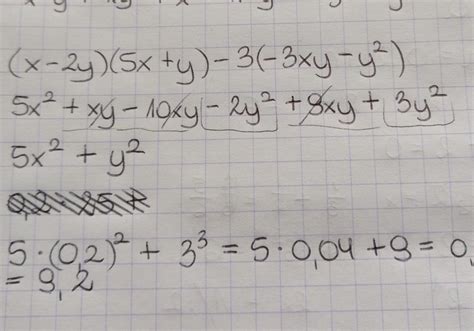 (x-2y)(5x+y)-3(-3xy-y²)
5x²+xy-10xy-2y²+9xy+3y²
5x²+y²
5·(0,2)²+3³=5·0,04+9=0,
=9,2